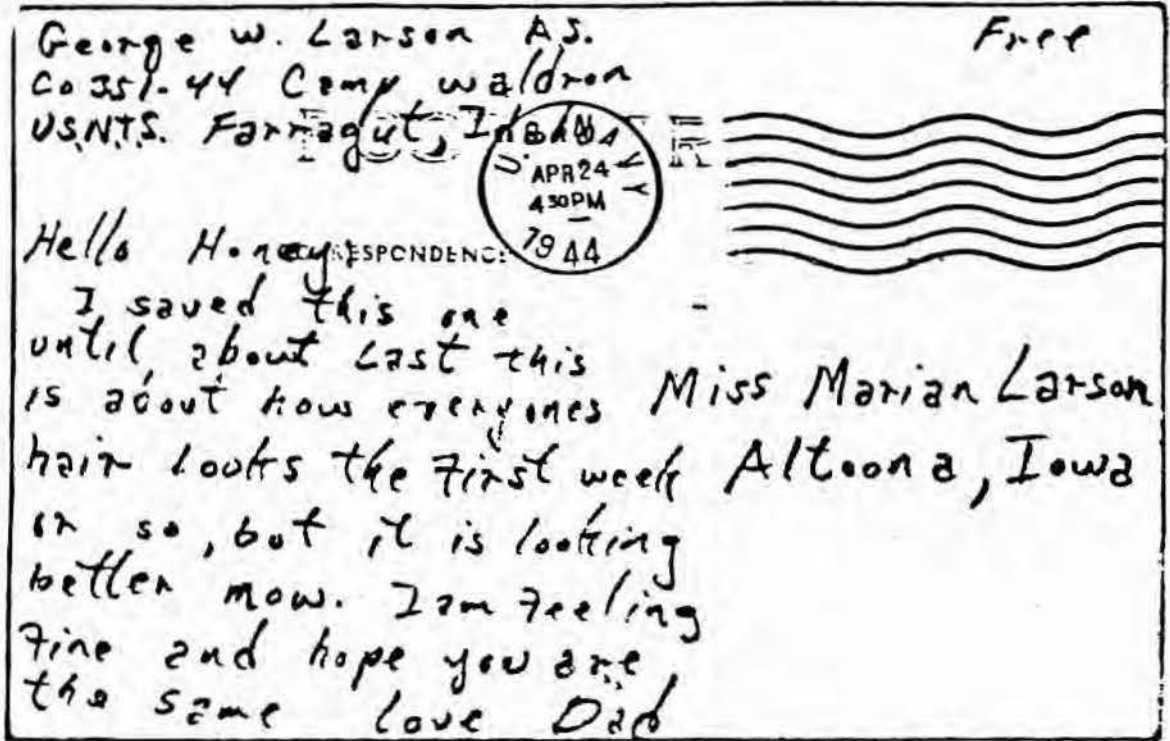 George W. Larson A.S.
Co 351-44 Camp Waldron
U.S.N.T.S. Farragut, Idaho
Free
U.S. NAVY
APR 24
4 30 PM
1944
Hello Honey
I saved this one
until about Last this
is about how everyones
hair looks the First week
or so, but it is looking
better now. I am Feeling
Fine and hope you are
the same Love Dad
RESPONDENCE
Miss Marian Larson
Altoona, Iowa